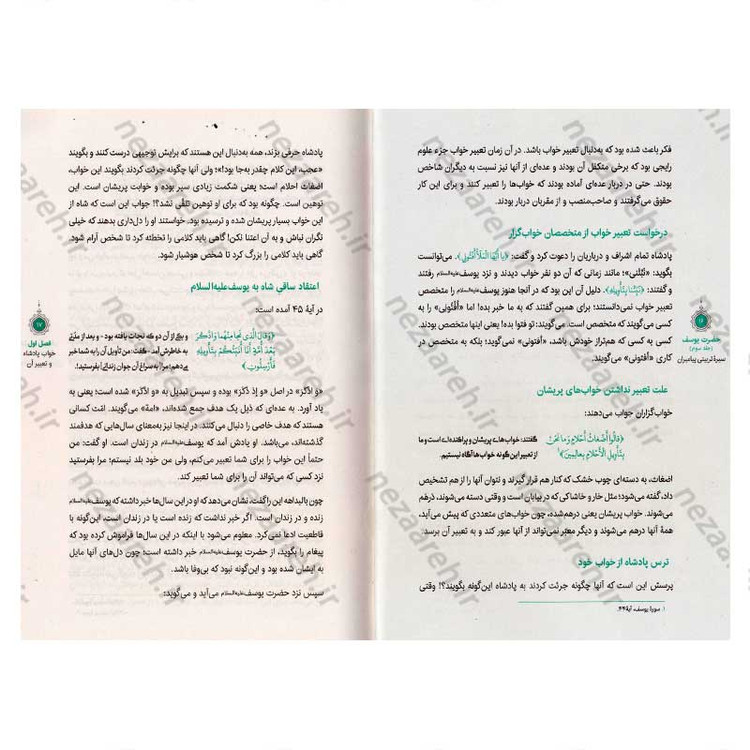 فکر باعث شده بود که به‌دنبال تعبیر خواب باشد. در آن زمان تعبیر خواب جزء علوم
رایجی بود که برخی متکفل آن بودند و عده‌ای از آنها نیز نسبت به دیگران شاخص
بودند. حتی در دربار عده‌ای آماده بودند که خواب‌ها را تعبیر کنند و برای این کار
حقوق می‌گرفتند و صاحب‌منصب و از مقربان دربار بودند.
درخواست تعبیر خواب از متخصصان خواب‌گزار
پادشاه تمام اشراف و درباریان را دعوت کرد و گفت: ﴿یا أَیُّهَا الْمَلَأُ أَفْتُونی﴾. می‌توانست
بگوید: «نَبِّئْنی»؛ مانند زمانی که آن دو نفر خواب دیدند و نزد یوسف علیه‌السلام رفتند
و گفتند: ﴿نَبِّئْنا بِتَأْویلِهِ﴾. دلیل آن این بود که در آنجا هنوز یوسف علیه‌السلام را متخصص
تعبیر خواب نمی‌دانستند؛ برای همین گفتند که به ما خبر بده! اما «أَفْتُونی» را به
کسی می‌گویند که متخصص است. می‌گویند: تو فتوا بده! یعنی اینها متخصص بودند.
کسی به کسی که هم‌تراز خودش باشد، «أفتونی» نمی‌گوید؛ بلکه به متخصص در
کاری «أفتونی» می‌گویند.
علت تعبیر نداشتن خواب‌های پریشان
خواب‌گزاران جواب می‌دهند:
﴿قالُوا أَضْغاثُ أَحْلامٍ وَ ما نَحْنُ
بِتَأْویلِ الْأَحْلامِ بِعالِمینَ﴾۱
گفتند: خواب‌های پریشان و پراکنده‌ای است و ما
از تعبیر این‌گونه خواب‌ها آگاه نیستیم.
اضغاث، به دسته‌ای چوب خشک که کنار هم قرار گیرند و نتوان آنها را از هم تشخیص
داد، گفته می‌شود؛ مثل خار و خاشاکی که در بیابان است و وقتی دسته می‌شوند، درهم
می‌شوند. خواب پریشان یعنی درهم‌شده، چون خواب‌های متعددی که پیش می‌آید،
همهٔ آنها درهم می‌شوند و دیگر معبّر نمی‌تواند از آنها عبور کند و به تعبیر آن برسد.
ترس پادشاه از خواب خود
پرسش این است که آنها چگونه جرئت کردند به پادشاه این‌گونه بگویند؟! وقتی
۱. سورهٔ یوسف، آیهٔ ۴۴.
حضرت یوسف
(جلد سوم)
سیرهٔ تربیتی پیامبران
پادشاه حرفی بزند، همه به‌دنبال این هستند که برایش توجیهی درست کنند و بگویند
«عجب، این کلام چقدر به‌جا بود!»؛ ولی آنها چگونه جرئت کردند بگویند این خواب،
اضغاث احلام است؛ یعنی شکمت زیادی سیر بوده و خوابت پریشان است. این
توهین است. چگونه بود که برای او توهین تلقّی نشد؟! جواب این است که شاه از
این خواب بسیار پریشان شده و ترسیده بود. خواستند او را دل‌داری بدهند که خیلی
نگران نباش و به آن اعتنا نکن! گاهی باید کلامی را تخطئه کرد تا شخص آرام شود.
گاهی باید کلامی را بزرگ کرد تا شخص هوشیار شود.
اعتقاد ساقیِ شاه به یوسف علیه‌السلام
در آیهٔ ۴۵ آمده است:
﴿وَ قالَ الَّذی نَجا مِنْهُما وَ ادَّکَرَ
بَعْدَ أُمَّةٍ أَنَا أُنَبِّئُکُمْ بِتَأْویلِهِ
فَأَرْسِلُونِ﴾
و یکی از آن دو که نجات یافته بود - و بعد از مدّتی
به خاطرش آمد - گفت: من تأویل آن را به شما خبر
می‌دهم؛ مرا به سراغ آن جوان زندانی بفرستید!
«وَ ادَّکَرَ» در اصل «وَ إذ ذَکَرَ» بوده و سپس تبدیل به «و ادّکَرَ» شده است؛ یعنی به
یاد آورد. به عده‌ای که ذیل یک هدف جمع شده‌اند، «امة» می‌گویند. امّت کسانی
هستند که هدف خاصی را دنبال می‌کنند. در اینجا نیز به‌معنای سال‌هایی که هدفمند
گذشته‌اند، می‌باشد. او یادش آمد که یوسف علیه‌السلام در زندان است. او گفت: من
حتماً این خواب را برای شما تعبیر می‌کنم، ولی من خود بلد نیستم؛ مرا بفرستید
نزد کسی که می‌تواند آن را برای شما تعبیر کند.
چون بالبداهه این را گفت، نشان می‌دهد که او در این سال‌ها خبر داشته که یوسف علیه‌السلام
زنده و در زندان است. اگر خبر نداشت که زنده است یا در زندان است، این‌گونه با
قاطعیت ادعا نمی‌کرد. معلوم می‌شود با اینکه در این سال‌ها فراموش کرده بود که
پیغام را بگوید، از حضرت یوسف علیه‌السلام خبر داشته است؛ چون دل‌های آنها مایل
به ایشان شده بود و این‌گونه نبود که بی‌وفا باشد.
سپس نزد حضرت یوسف علیه‌السلام می‌آید و می‌گوید:
۱۷
فصل اول
خواب پادشاه
و تعبیر آن
nezaareh.ir